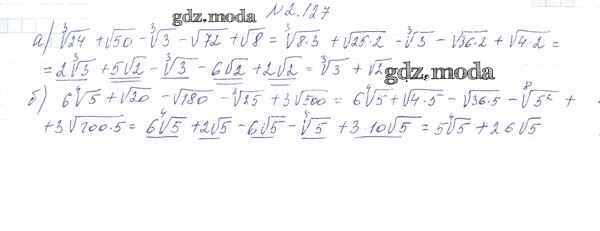 gdz.moda №2.127
а) ∛24 + √50 - ∛3 - √72 + √8 = ∛8·3 + √25·2 - ∛3 - √36·2 + √4·2 =
= 2∛3 + 5√2 - ∛3 - 6√2 + 2√2 = ∛3 + √2 gdz.moda
б) 6∜5 + √20 - √180 - ⁸√25 + 3√500 = 6∜5 + √4·5 - √36·5 - ⁸√5² +
+ 3√100·5 = 6∜5 + 2√5 - 6√5 - ∜5 + 3·10√5 = 5∜5 + 26√5